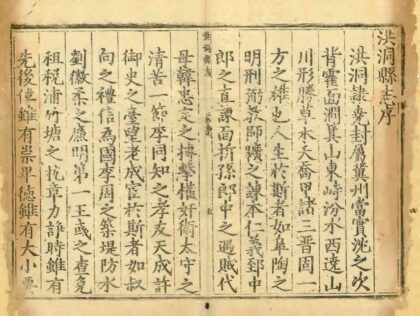 洪洞縣志序
洪洞隸堯封屬冀州當實沈之次
背霍面澗巢山東峙汾水西遶山
川形勝草木夭喬甲諸三晉固一
方之雄也人生於斯者如皐陶之
明刑弼教師曠之諫本仁義郅中
郎之直諫面折孫郎中之遇賊代
母韓忠定之抨擊權奸衛太守之
清苦一節李同知之孝友天成許
御史之臺望老成官於斯者如叔
向之禮信為國李周之築堤防水
劉徽柔之廉明第一王彧之查免
租稅蒲竹塘之抗章力諍時雖有
先後位雖有崇卑德雖有大小要